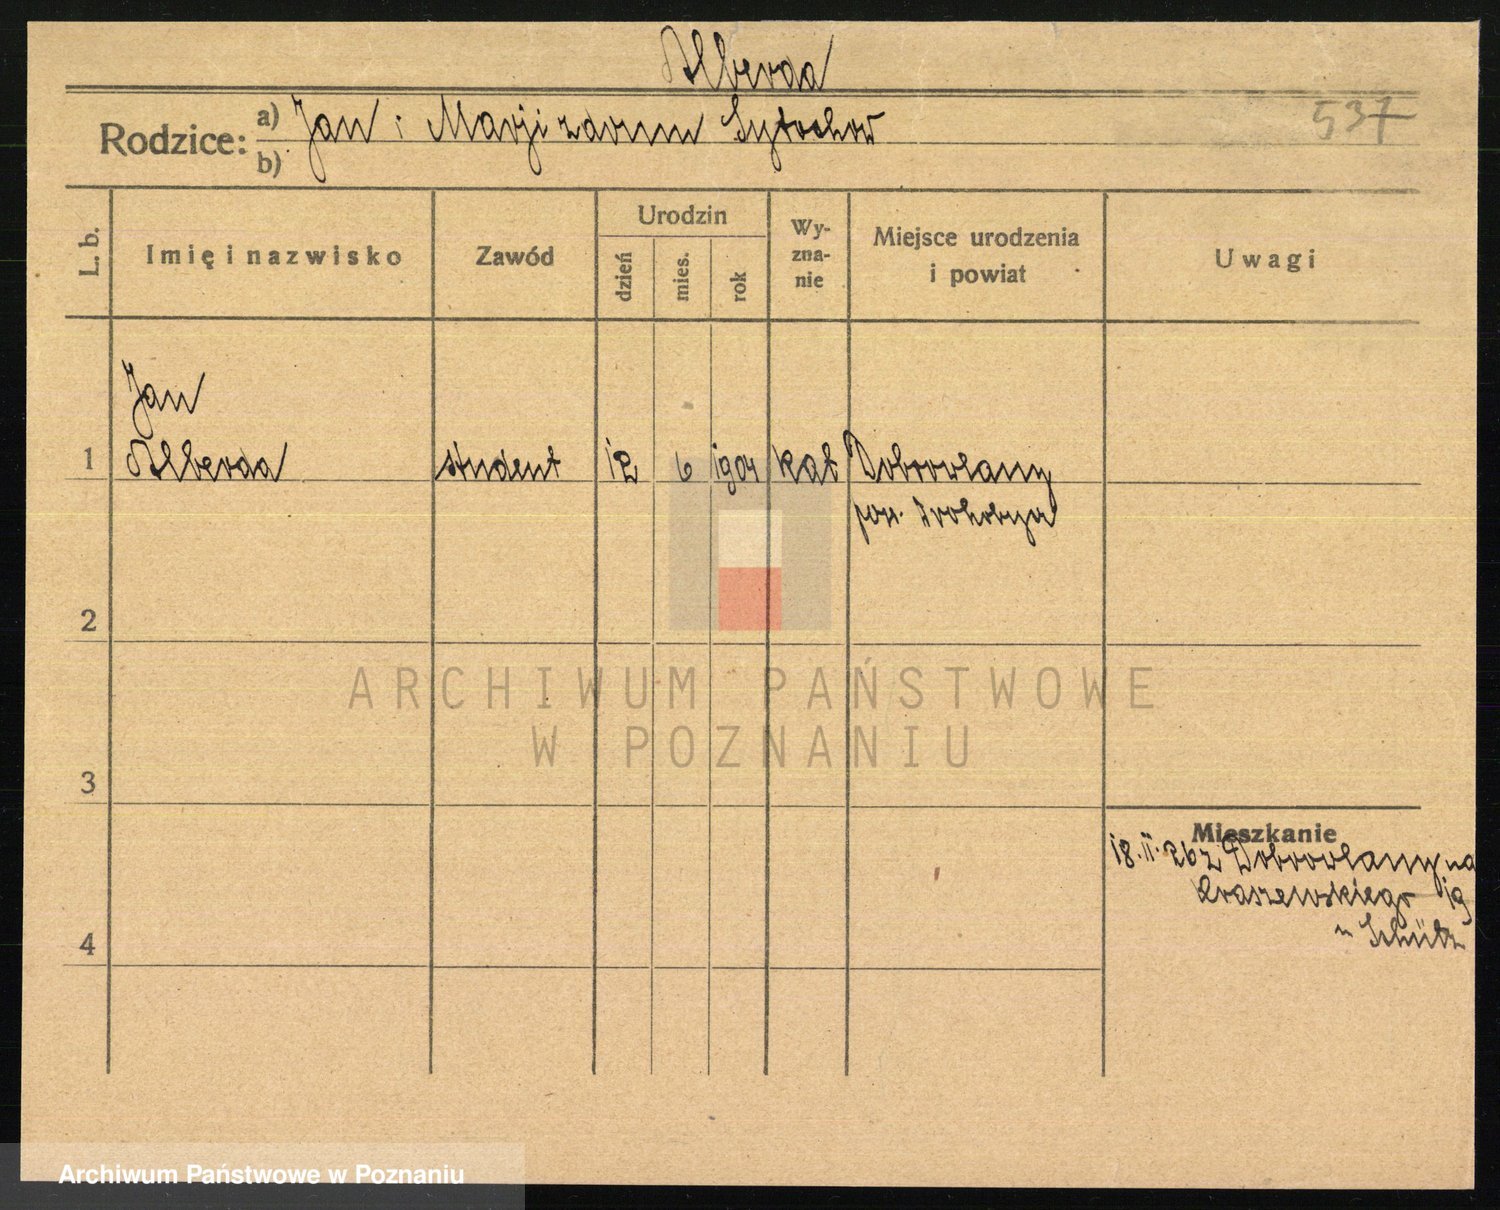 Alberda
Rodzice: a) Jan i Marji z domu
b)
537
L. b.
Imię i nazwisko
Zawód
Urodzin
dzień
mies.
rok
Wy-
zna-
nie
Miejsce urodzenia
i powiat
Uwagi
Jan
1 Alberda student 12 6 1904 kat Dobrowlany
pow. Drohobycz
2
3
4
Mieszkanie
18.II.26 z Dobrowlany na
Kraszewskiego 19
u Schütz
ARCHIWUM PAŃSTWOWE
W POZNANIU
Archiwum Państwowe w Poznaniu